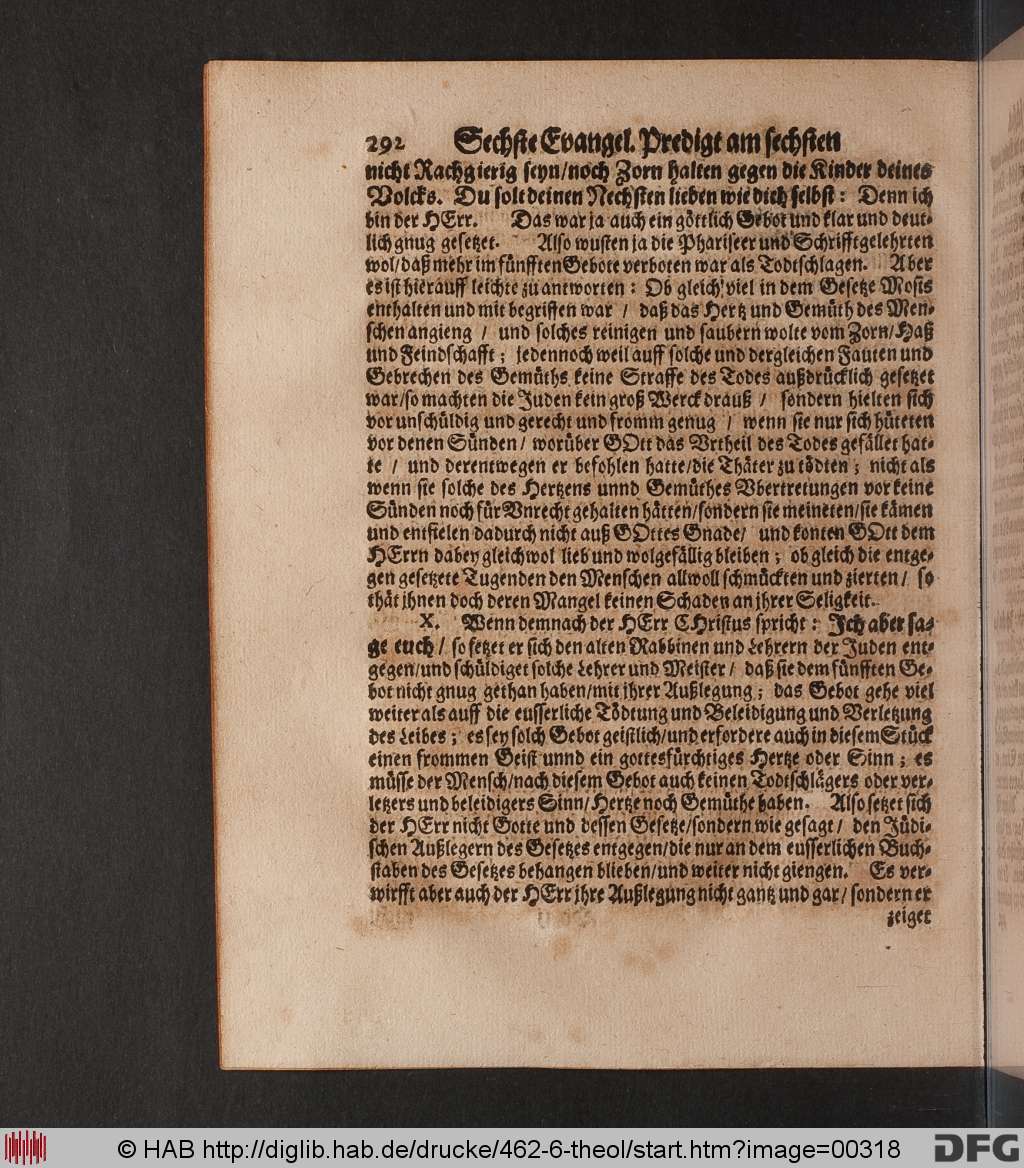 292 Sechste Evangel. Predigt am sechsten
nicht Rachgierig seyn/noch Zorn halten gegen die Kinder deines
Volcks. Du solt deinen Nechsten lieben wie dich selbst: Denn ich
bin der HErr. Das war ja auch ein göttlich Gebot und klar und deut-
lich gnug gesetzet. Also wusten ja die Phariseer und Schrifftgelehrten
wol/daß mehr im fünfften Gebote verboten war als Todtschlagen. Aber
es ist hierauff leichte zu antworten: Ob gleich viel in dem Gesetze Mosis
enthalten und mit begriffen war / daß das Hertz und Gemüth des Men-
schen angieng / und solches reinigen und saubern wolte vom Zorn/Haß
und Feindschafft; jedennoch weil auff solche und dergleichen Fauten und
Gebrechen des Gemüths keine Straffe des Todes außdrücklich gesetzet
war/so machten die Juden kein groß Werck drauß / sondern hielten sich
vor unschüldig und gerecht und fromm genug / wenn sie nur sich hüteten
vor denen Sünden/ worüber GOtt das Vrtheil des Todes gefället hat-
te / und derentwegen er befohlen hatte/die Thäter zu tödten; nicht als
wenn sie solche des Hertzens unnd Gemüthes Vbertretungen vor keine
Sünden noch für Vnrecht gehalten hätten/sondern sie meineten/sie kämen
und entfielen dadurch nicht auß GOttes Gnade/ und konten GOtt dem
HErrn dabey gleichwol lieb und wolgefällig bleiben; ob gleich die entge-
gen gesetzete Tugenden den Menschen allwoll schmückten und zierten/ so
thät jhnen doch deren Mangel keinen Schaden an jhrer Seligkeit.
X. Wenn demnach der HErr CHristus spricht: Ich aber sa-
ge euch/ so setzet er sich den alten Rabbinen und Lehrern der Juden ent-
gegen/und schüldiget solche Lehrer und Meister/ daß sie dem fünfften Ge-
bot nicht gnug gethan haben/mit jhrer Außlegung; das Gebot gehe viel
weiter als auff die eusserliche Tödtung und Beleidigung und Verletzung
des Leibes; es sey solch Gebot geistlich/und erfordere auch in diesem Stück
einen frommen Geist unnd ein gottesfürchtiges Hertze oder Sinn; es
müsse der Mensch/nach diesem Gebot auch keinen Todtschlägers oder ver-
letzers und beleidigers Sinn/Hertze noch Gemüthe haben. Also setzet sich
der HErr nicht Gotte und dessen Gesetze/sondern wie gesagt/ den Jüdi-
schen Außlegern des Gesetzes entgegen/die nur an dem eusserlichen Buch-
staben des Gesetzes behangen blieben/und weiter nicht giengen. Es ver-
wirfft aber auch der HErr jhre Außlegung nicht gantz und gar/ sondern er
zeiget
© HAB http://diglib.hab.de/drucke/462-6-theol/start.htm?image=00318
DFG